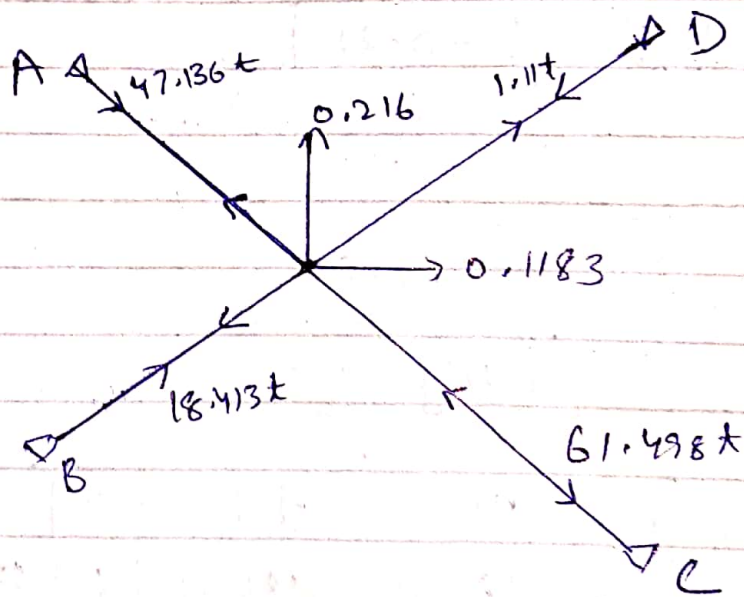 A
47.136t
D
1.11t
0.216
0.1183
18.413t
B
61.498t
C